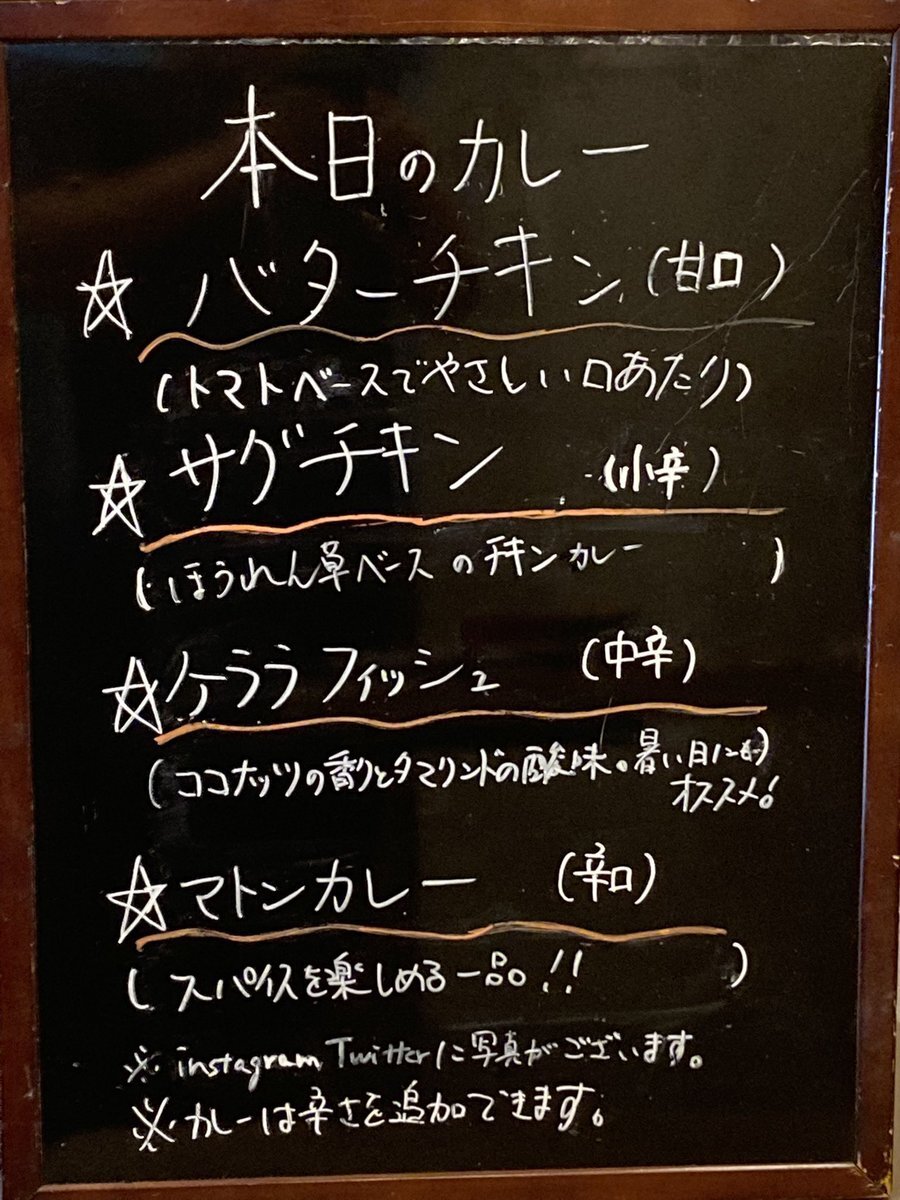 本日のカレー
☆ バターチキン (甘口)
(トマトベースでやさしい口あたり)
☆ サグチキン (小辛)
(ほうれん草ベースのチキンカレー)
☆ ケララフィッシュ (中辛)
(ココナッツの香りとタマリンドの酸味。暑い日に
オススメ!)
☆ マトンカレー (辛口)
(スパイスを楽しめる一品!!)
※ instagram, Twitterに写真がございます。
※ カレーは辛さを追加できます。